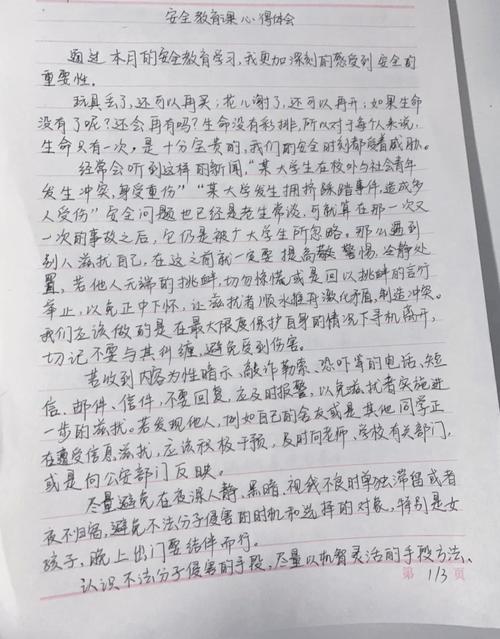 安全教育课心得体会
通过本月的安全教育学习,我更加深刻的感受到安全的
重要性.
玩具丢了,还可以再买;花儿谢了,还可以再开;如果生命
没有了呢?还会再有吗?生命没有彩排,所以对于每个人来说,
生命只有一次,是十分宝贵的,我们的安全时刻都受着威胁.
经常会听到这样的新闻,“某大学生在校外与社会青年
发生冲突,身受重伤”“某大学发生拥挤踩踏事件,造成多
人受伤”安全问题也已经是老生常谈,可就算在那一次又
一次的事故之后,它仍是被广大学生所忽略。那么遇到
别人滋扰自己,在这之前就一定要提高警惕,冷静处
置,若他人无端的挑衅,切勿惊慌或是回以挑衅的言行
举止,以免正中下怀,让滋扰者顺水推舟激化矛盾,制造冲突。
我们应该做的是在最大限度保护自身的情况下寻机离开,
切记不要与其纠缠,避免受到伤害。
若收到内容为性暗示、敲诈勒索、恐吓等的电话、短
信、邮件、信件,不要回复,应及时报警,以免滋扰者实施进
一步的滋扰。若发现他人,例如自己的舍友或是其他同学正
在遭受信息滋扰,应该积极干预,及时向老师、学校有关部门,
或是向公安部门反映。
尽量避免在夜深人静、黑暗、视线不良时单独滞留或者
夜不归宿,避免不法分子侵害的时机和选择的对象,特别是女
孩子,晚上出门要结伴而行。
认识不法分子侵害的手段,尽量以机智灵活的手段方法、
第 1/3 页